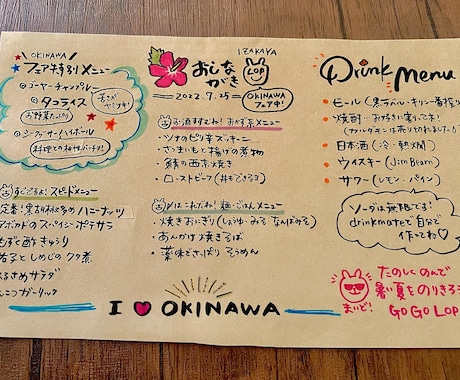 OKINAWA
フェア特別メニュー
ゴーヤーチャンプルー
タコライス
お野菜たっぷり
シークヮーサーハイボール
料理との相性バッチリ!
すぐでるよ! スピードメニュー
ハニーナッツ
アボカドのスパイシーポテサラ
もずく酢きゅうり
しめじのワタ煮
はるさめサラダ
ガーリック
IZAKAYA
おしながき
LOP
2022.7.25
OKINAWA
フェア中!
お酒すすむね! おかず系メニュー
ツナのピリ辛ズッキーニ
さつまいもと揚げの煮物
鯖の西京焼き
ローストビーフ
〆はこれだね! 麺・ごはんメニュー
焼きおにぎり(しょうゆ・みそ なんばみそ)
あんかけ焼きそば
薬味でさっぱり そうめん
I OKINAWA
Drink Menu
ビール(黒ラベル・キリン一番搾り
焼酎…お好きに選んで!
日本酒(冷・熱燗)
ウイスキー(Jim Beam)
サワー(レモン・パイン)
ソーダは無限です!
drinkmateで自分で
作ってね
たのしくのんで
暑い夏をのりきろう
GO GO LOP
まいど!